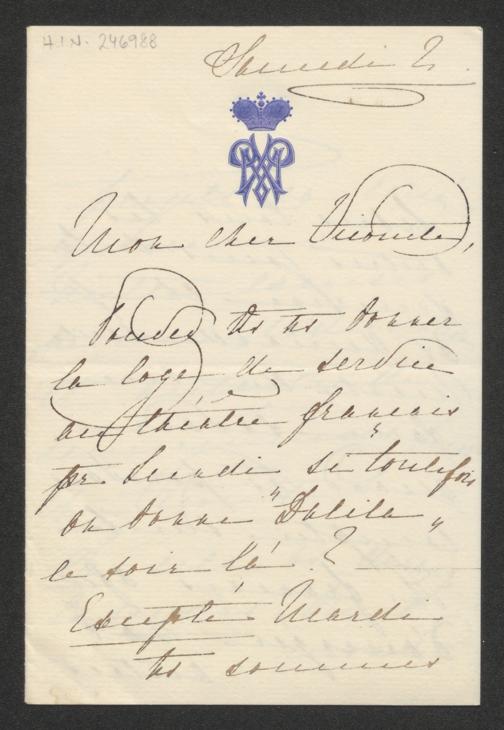 H.I.N. 246988
Samedi 2.
Mon cher Vicomte,
Pouvez vs ns donner
la loge de service
au théâtre français
pr Lundi si toutefois
on donne "Dalila"
le soir là ?
Excepté Mardi
ns sommes